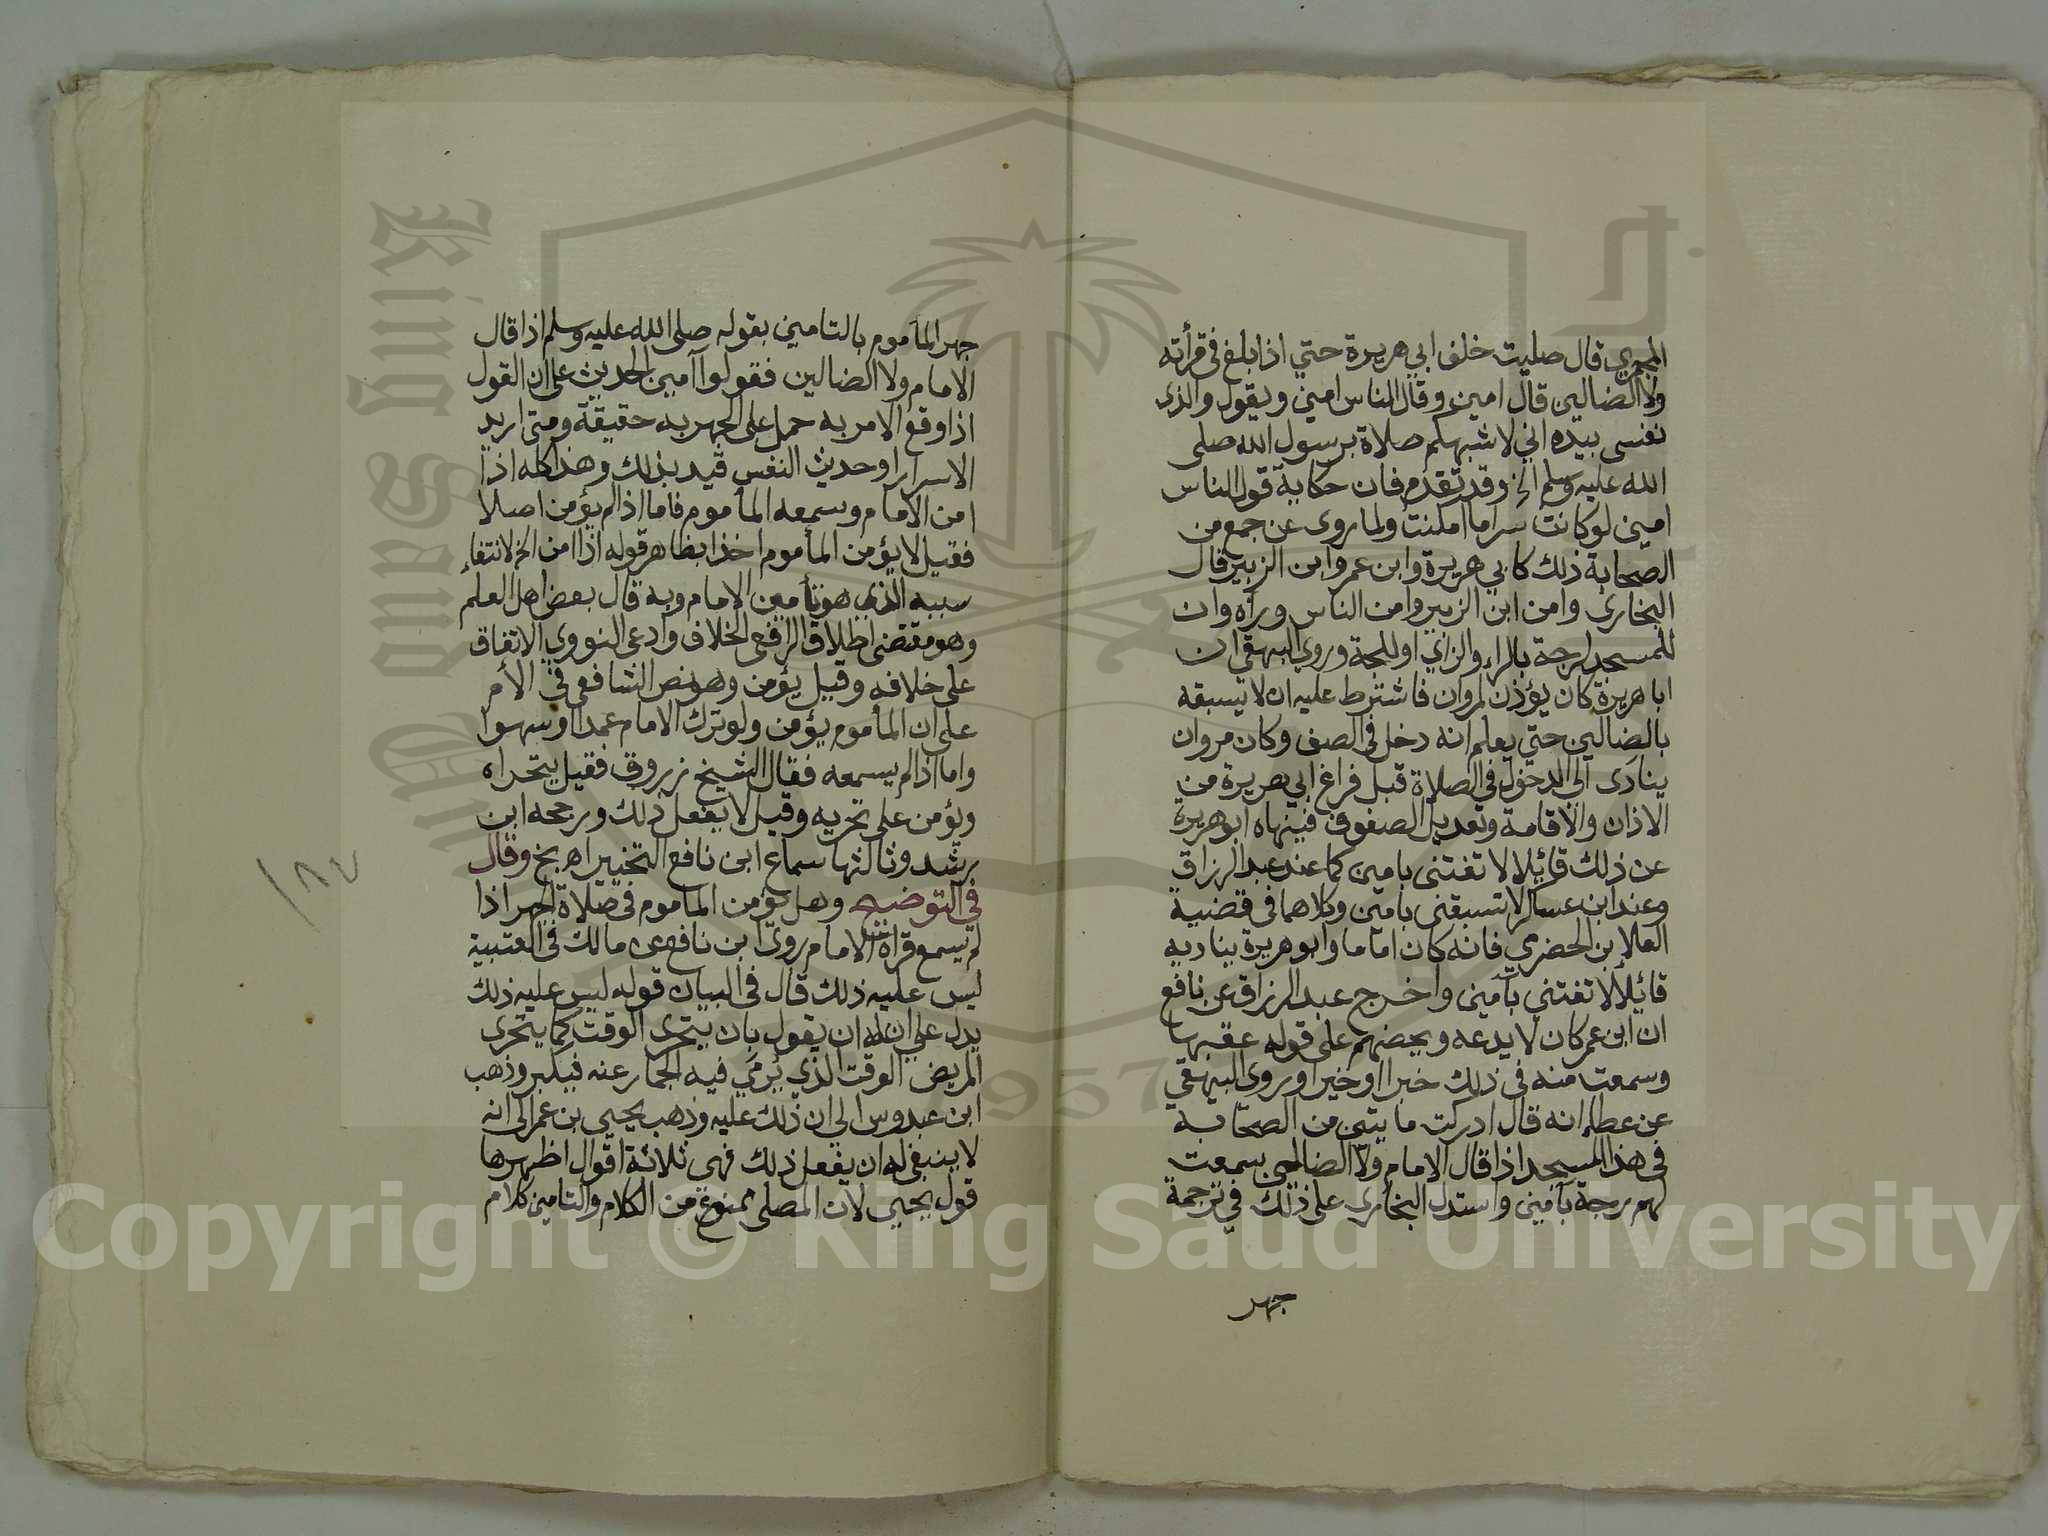 المجمري قال صليت خلف ابي هريرة حتي اذا بلغ في قرأته
ولا الضالين قال امين وقال الناس امين ويقول والذي
نفسي بيده اني لاشبهكم صلاة برسول الله صلى
الله عليه وسلم الخ وقد تقدم فان حكاية قول الناس
امين لو كانت سرا ما امكنت ولما روى عن جمع من
الصحابة ذلك كابي هريرة وابن عمر وابن الزبير قال
البخاري وامن ابن الزبير وامن الناس وراه وان
للمسجد لرجة بالراء والزاي او للجة وروي البيهقي ان
ابا هريرة كان يؤذن لمروان فاشترط عليه ان لا يسبقه
بالضالين حتي يعلم انه دخل في الصف وكان مروان
ينادى الى الدخول في الصلاة قبل فراغ ابي هريرة من
الاذان والاقامة وتعديل الصفوف فينهاه ابو هريرة
عن ذلك قائلا لا تفتني بامين كما عند عبد الرزاق
وعند ابن عساكر لا تسبقني بامين وكلاهما في قضية
العلا بن الحضرمي فانه كان اماما وابو هريرة يناديه
قائلا لا تفتني بآمين واخرج عبد الرزاق عن نافع
ان ابن عمر كان لا يدعه ويحضهم على قوله عقبها
وسمعت منه في ذلك خبرا او خيرا وروى البيهقي
عن عطاء انه قال ادركت مايتين من الصحابة
في هذا المسجد اذا قال الامام ولا الضالين سمعت
لهم رجة بآمين واستدل البخاري على ذلك في ترجمة
جهر
جهر المأموم بالتامين بقوله صلى الله عليه وسلم اذا قال
الامام ولا الضالين فقولوا آمين الحديث على ان القول
اذا وقع الامر به حمل على الجهر به حقيقة ومتى اريد
الاسرار او حديث النفس قيد بذلك وهذا كله اذا
امن الامام وسمعه المأموم فاما اذا لم يؤمن اصلا
فقيل لا يؤمن المأموم اخذا بظاهر قوله اذا امن الخ لانتفاء
سببه الذي هو تأمين الامام وبه قال بعض اهل العلم
وهو مقتضى اطلاق الرافعي الخلاف وادعى النووي الاتفاق
على خلافه وقيل يؤمن وهو نص الشافعي في الأم
على ان المأموم يؤمن ولو ترك الامام عمدا او سهوا
واما اذا لم يسمعه فقال الشيخ زروق فقيل يتحراه
ويؤمن على تحريه وقيل لا يفعل ذلك ورجحه ابن
رشد وثالثها سماع ابن نافع التخيير اه بخ وقال
في التوضيح وهل يؤمن الماموم في صلاة الجهر اذا
لم يسمع قراة الامام روى ابن نافع عن مالك في العتبية
ليس عليه ذلك قال في البيان قوله ليس عليه ذلك
يدل على ان له ان يقول بان يتحرى الوقت كما يتحرى
المريض الوقت الذي يرمي فيه الجمار عنه فيكبر وذهب
ابن عبدوس الى ان ذلك عليه وذهب يحيي بن عمر الى انه
لا ينبغي له ان يفعل ذلك فهي ثلاثة اقوال اظهرها
قول يحيي لان المصلي ممنوع من الكلام والتامين كلام
١٨٧
King Saud University
1957
Copyright © King Saud University